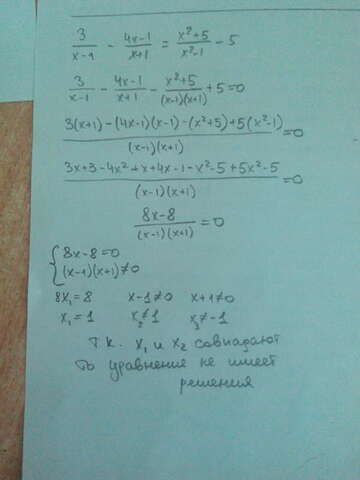 3/(x-1) - (4x-1)/(x+1) = (x²+5)/(x²-1) - 5
3/(x-1) - (4x-1)/(x+1) - (x²+5)/((x-1)(x+1)) + 5 = 0
(3(x+1) - (4x-1)(x-1) - (x²+5) + 5(x²-1))/((x-1)(x+1)) = 0
(3x+3-4x²+x+4x-1-x²-5+5x²-5)/((x-1)(x+1)) = 0
(8x-8)/((x-1)(x+1)) = 0
{ 8x-8=0
(x-1)(x+1)≠0
8x₁=8 x-1≠0 x+1≠0
x₁=1 x₂≠1 x₃≠-1
т.к. x₁ и x₂ совпадают
то уравнение не имеет
решения